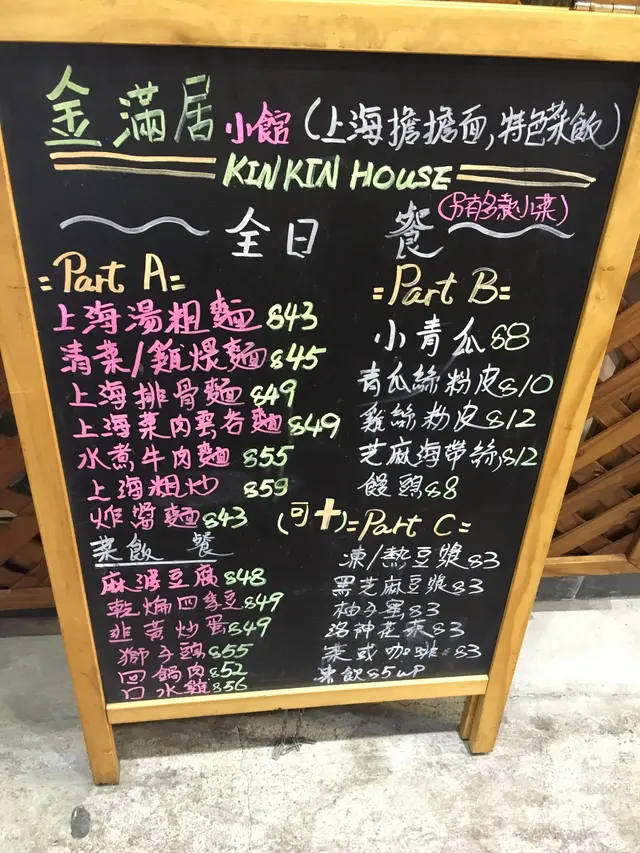 金滿居小館(上海擔擔面,特色菜飯)
KINKIN HOUSE
全日 餐(另有多款小菜)
=Part A=
上海湯粗麵 $43
清菜/雞煨麵 $45
上海排骨麵 $49
上海菜肉雲吞麵 $49
水煮牛肉麵 $55
上海粗炒 $59
炸醬麵 $43
菜飯 餐
麻婆豆腐 $48
乾煸四季豆 $49
韭黃炒蛋 $49
獅子頭 $55
回鍋肉 $52
口水雞 $56
=Part B=
小青瓜 $8
青瓜絲粉皮 $10
雞絲粉皮 $12
芝麻海帶絲 $12
饅頭 $8
(可+)=Part C=
凍/熱豆漿 $3
黑芝麻豆漿 $3
柚子蜜 $3
洛神花茶 $3
茶或咖啡 $3
果飲 $5 up